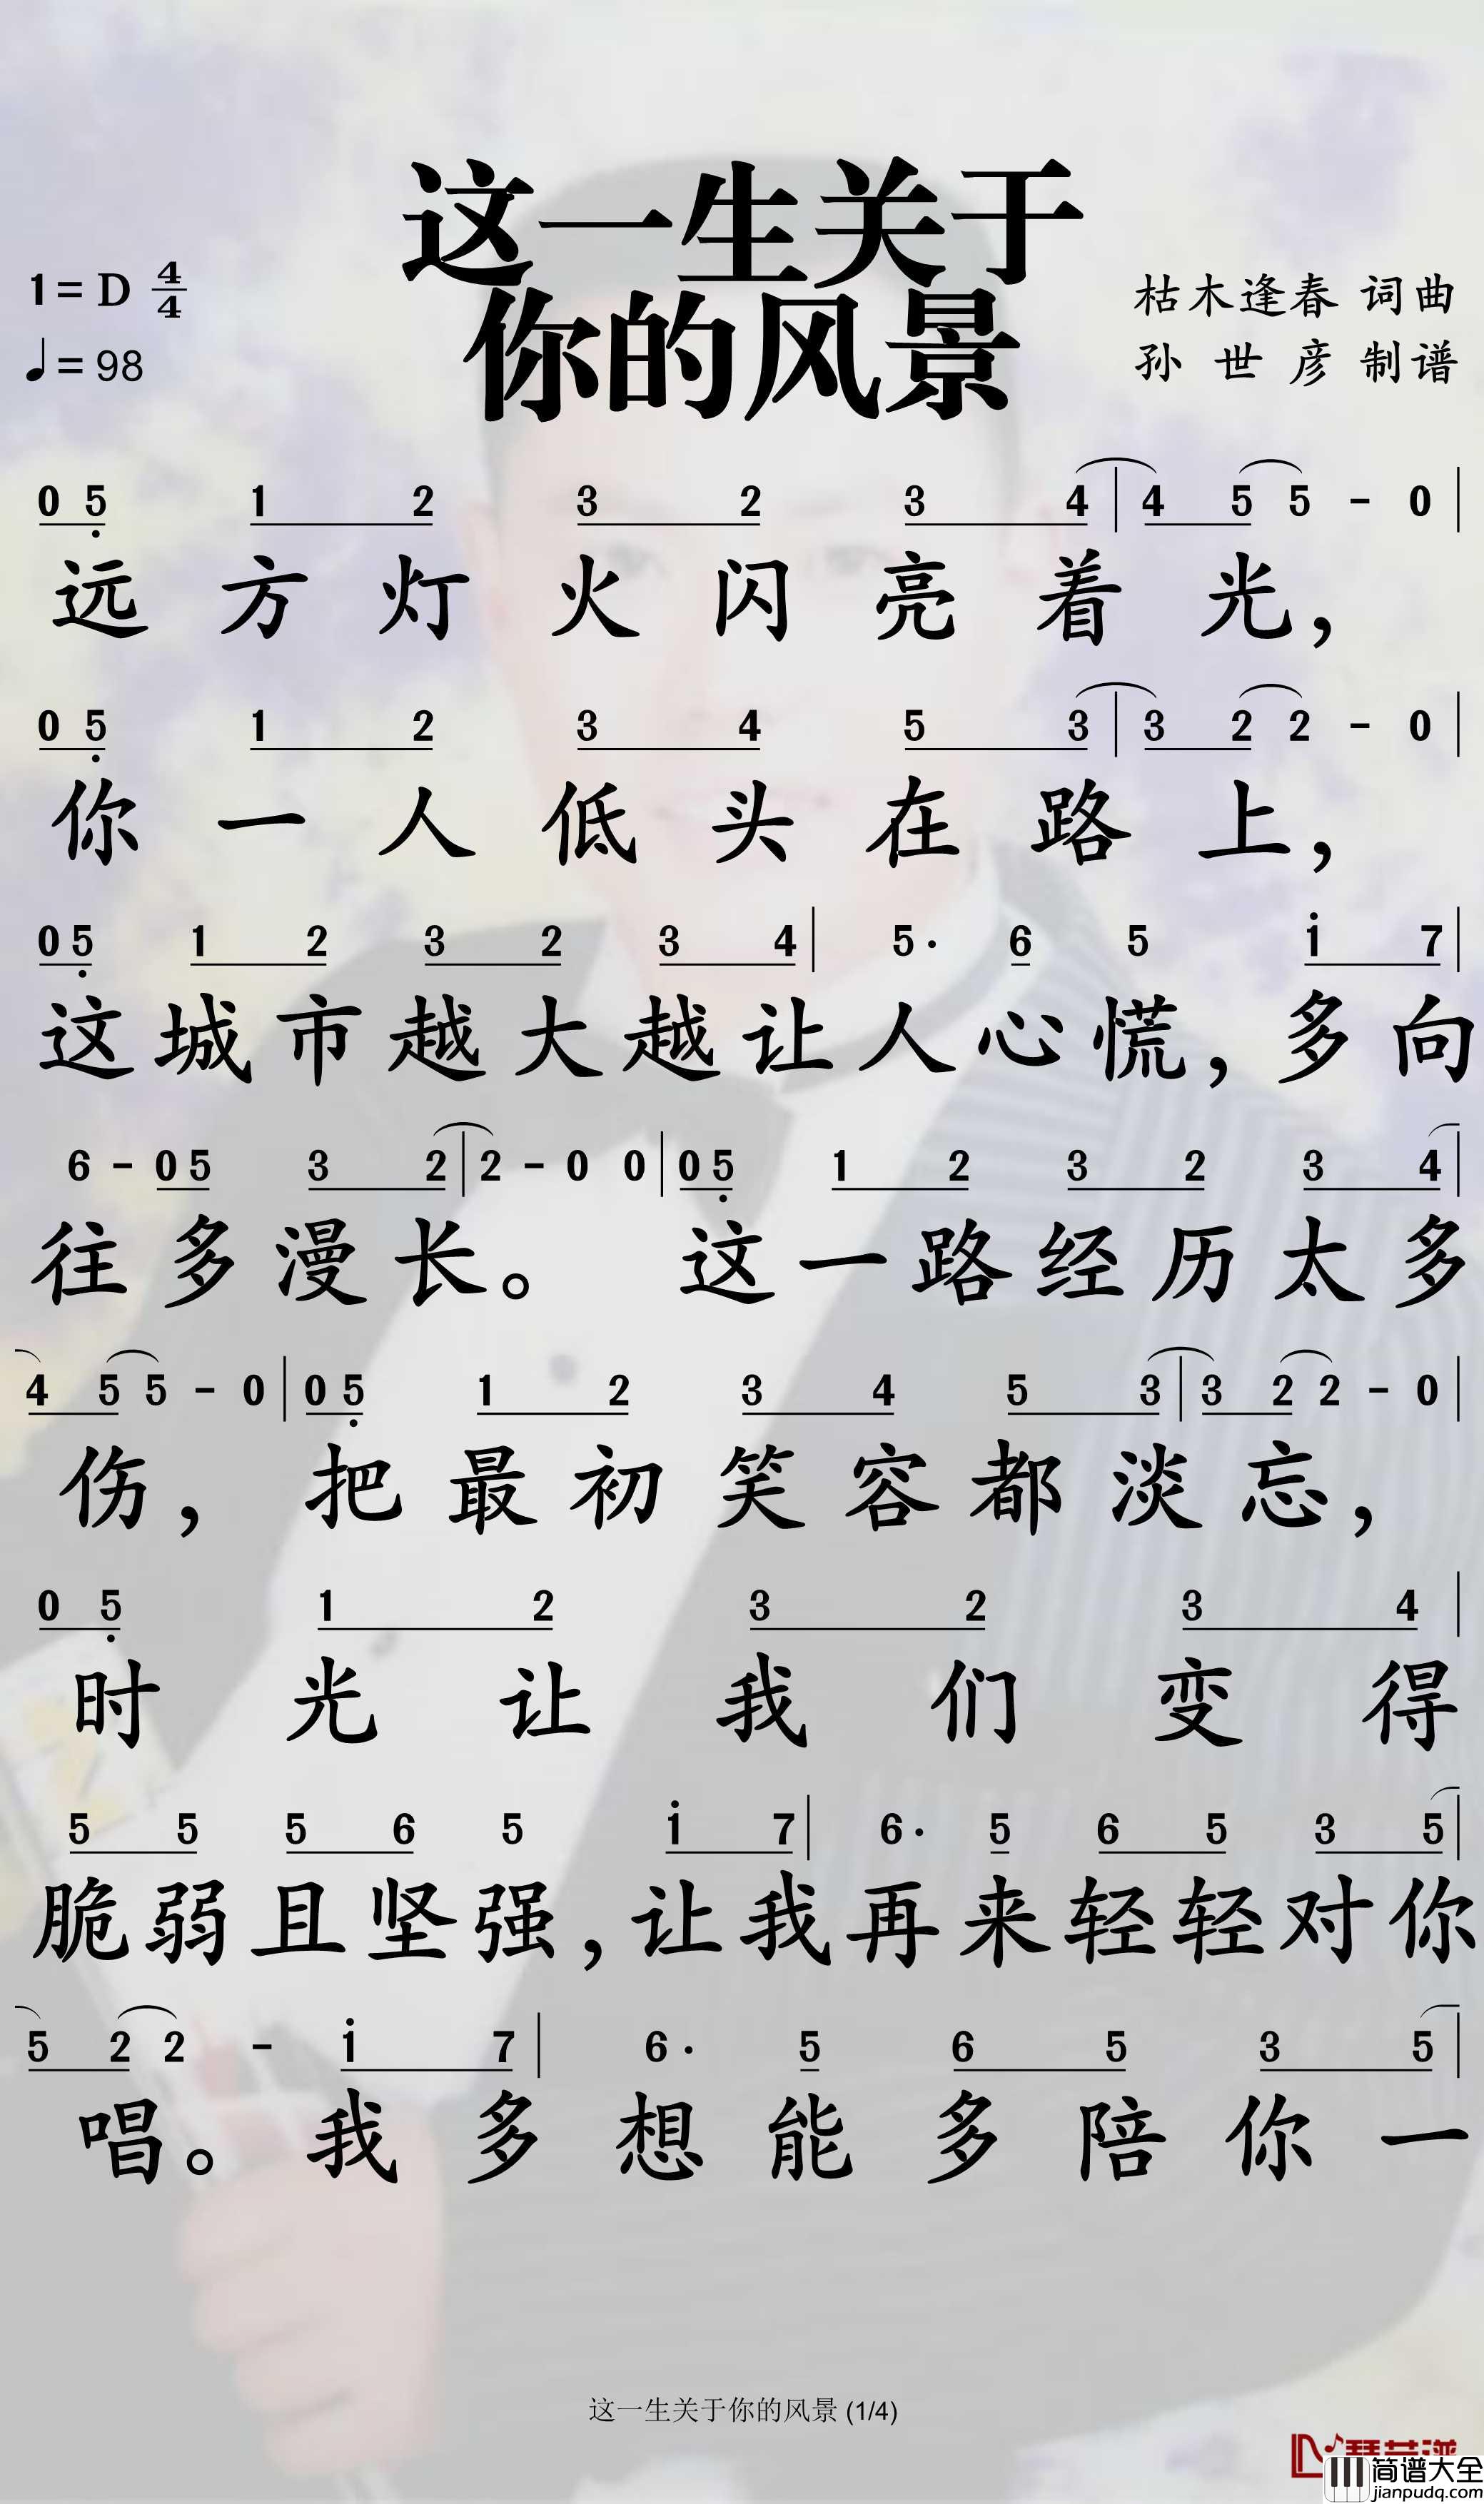 这一生关于
你的风景
1=D 4/4
♩=98
枯木逢春 词曲
孙世彦 制谱
0 5 1 2 3 2 3 4 | 4 5 5 - 0 |
远方灯火闪亮着光，
0 5 1 2 3 4 5 3 | 3 2 2 - 0 |
你一人低头在路上，
0 5 1 2 3 2 3 4 | 5· 6 5 1 7 |
这城市越大越让人心慌，多向
6 - 0 5 3 2 | 2 - 0 0 | 0 5 1 2 3 2 3 4 |
往多漫长。 这一路经历太多
4 5 5 - 0 | 0 5 1 2 3 4 5 3 | 3 2 2 - 0 |
伤，把最初笑容都淡忘，
0 5 1 2 3 2 3 4 |
时光让我们变得
5 5 5 6 5 1 7 | 6· 5 6 5 3 5 |
脆弱且坚强，让我再来轻轻对你
5 2 2 - 1 7 | 6· 5 6 5 3 5 |
唱。我多想能多陪你一
这一生关于你的风景 (1/4)
简谱大全
jianpudq.com